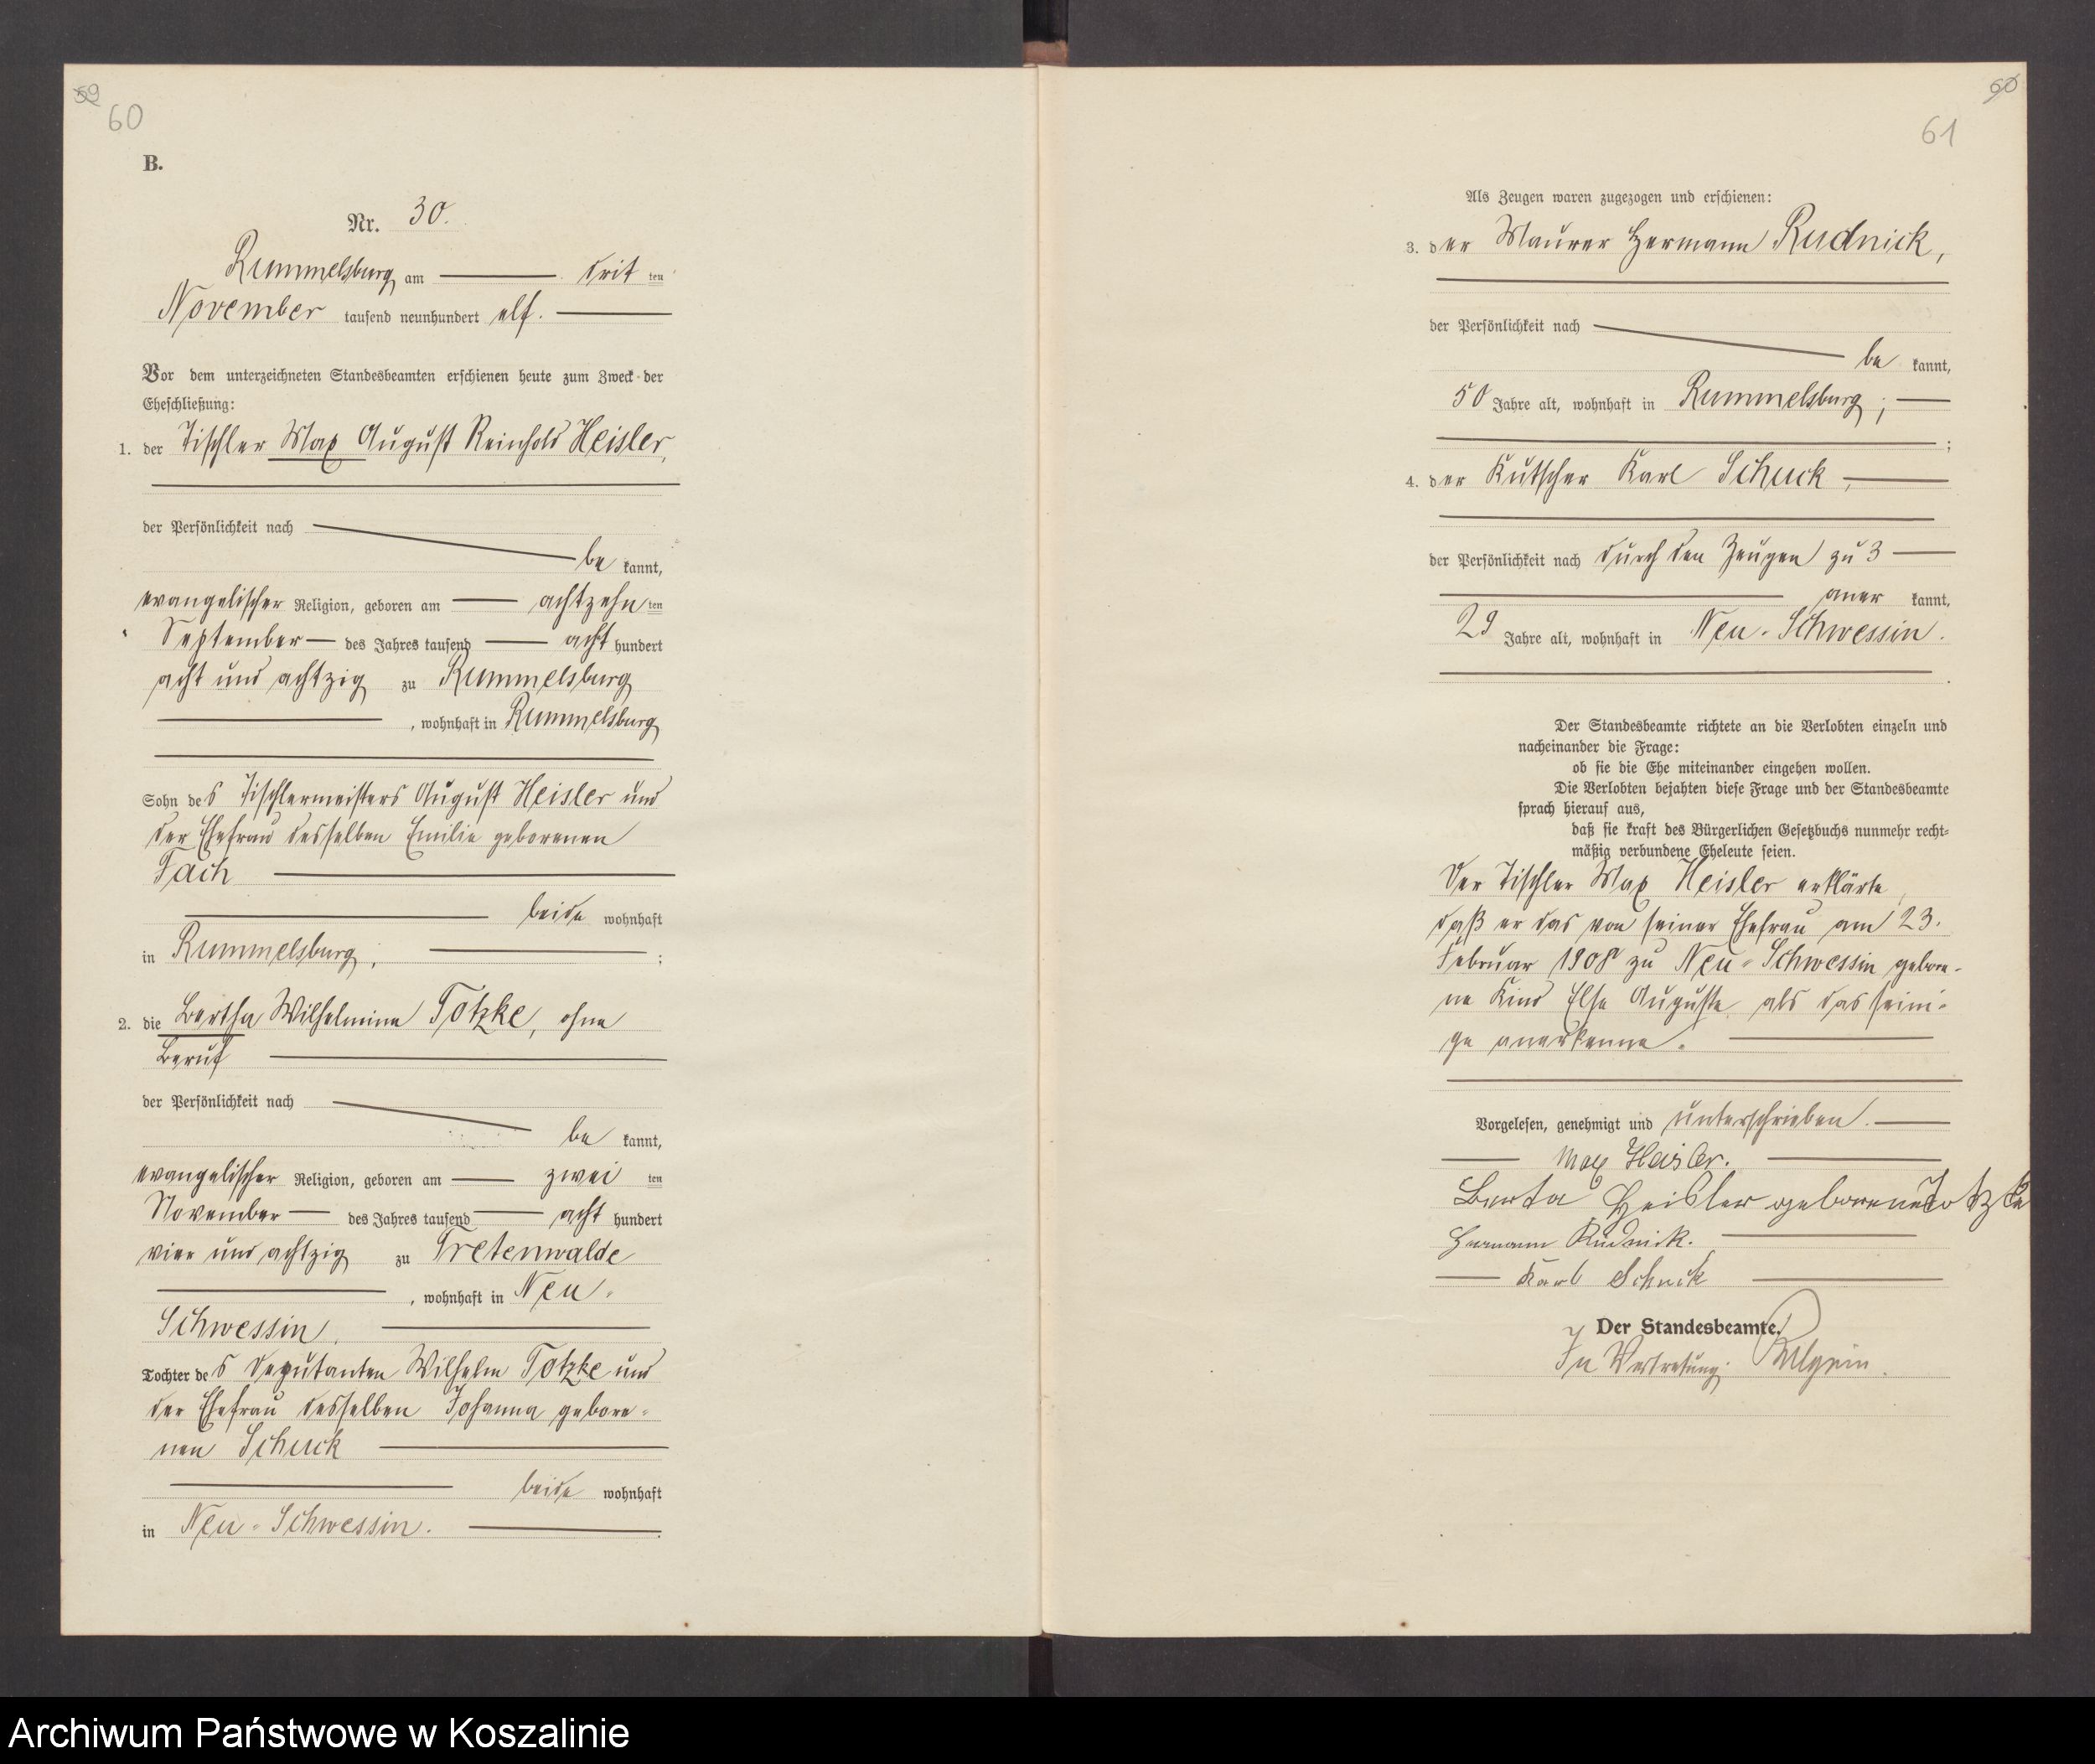 59
60
B.
Nr. 30.
Rummelsburg am drit ten
November tausend neunhundert elf.
Vor dem unterzeichneten Standesbeamten erschienen heute zum Zweck der
Eheschließung:
1. der Tischler Max August Reinhold Heisler,
der Persönlichkeit nach
be kannt,
evangelischer Religion, geboren am achtzehn ten
September des Jahres tausend acht hundert
acht und achtzig zu Rummelsburg
, wohnhaft in Rummelsburg
Sohn des Tischlermeisters August Heisler und
der Ehefrau desselben Emilie geborenen
Tach
beide wohnhaft
in Rummelsburg, ;
2. die Bertha Wilhelmine Totzke, ohne
Beruf
der Persönlichkeit nach
be kannt,
evangelischer Religion, geboren am zwei ten
November des Jahres tausend acht hundert
vier und achtzig zu Tretenwalde
, wohnhaft in Neu-
Schwessin,
Tochter des Deputanten Wilhelm Totzke und
der Ehefrau desselben Johanna gebore-
nen Schuck
beide wohnhaft
in Neu-Schwessin.
60
61
Als Zeugen waren zugezogen und erschienen:
3. der Maurer Hermann Rudnick,
der Persönlichkeit nach
be kannt,
50 Jahre alt, wohnhaft in Rummelsburg;
;
4. der Kutscher Karl Schuck,
der Persönlichkeit nach durch den Zeugen zu 3
aner kannt,
29 Jahre alt, wohnhaft in Neu-Schwessin.
Der Standesbeamte richtete an die Verlobten einzeln und
nacheinander die Frage:
ob sie die Ehe miteinander eingehen wollen.
Die Verlobten bejahten diese Frage und der Standesbeamte
sprach hierauf aus,
daß sie kraft des Bürgerlichen Gesetzbuchs nunmehr recht-
mäßig verbundene Eheleute seien.
Der Tischler Max Heisler erklärte,
daß er das von seiner Ehefrau am 23.
Februar 1908 zu Neu-Schwessin gebore-
ne Kind Elsa Auguste als das seini-
ge anerkenne.
Vorgelesen, genehmigt und unterschrieben.
Max Heisler.
Berta Heisler geborene Totzke
Hermann Rudnick.
Karl Schuck
Der Standesbeamte.
In Vertretung:
Archiwum Państwowe w Koszalinie